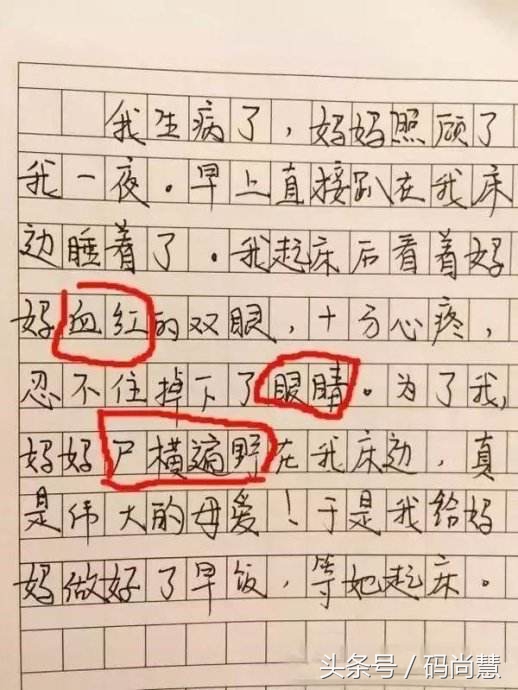 我生病了，妈妈照顾了
我一夜。早上直接趴在我床
边睡着了。我起床后看着妈
妈血红的双眼，十分心疼，
忍不住掉下了眼睛。为了我，
妈妈尸横遍野在我床边，真
是伟大的母爱！于是我给妈
妈做好了早饭，等她起床。
头条号 / 码尚慧